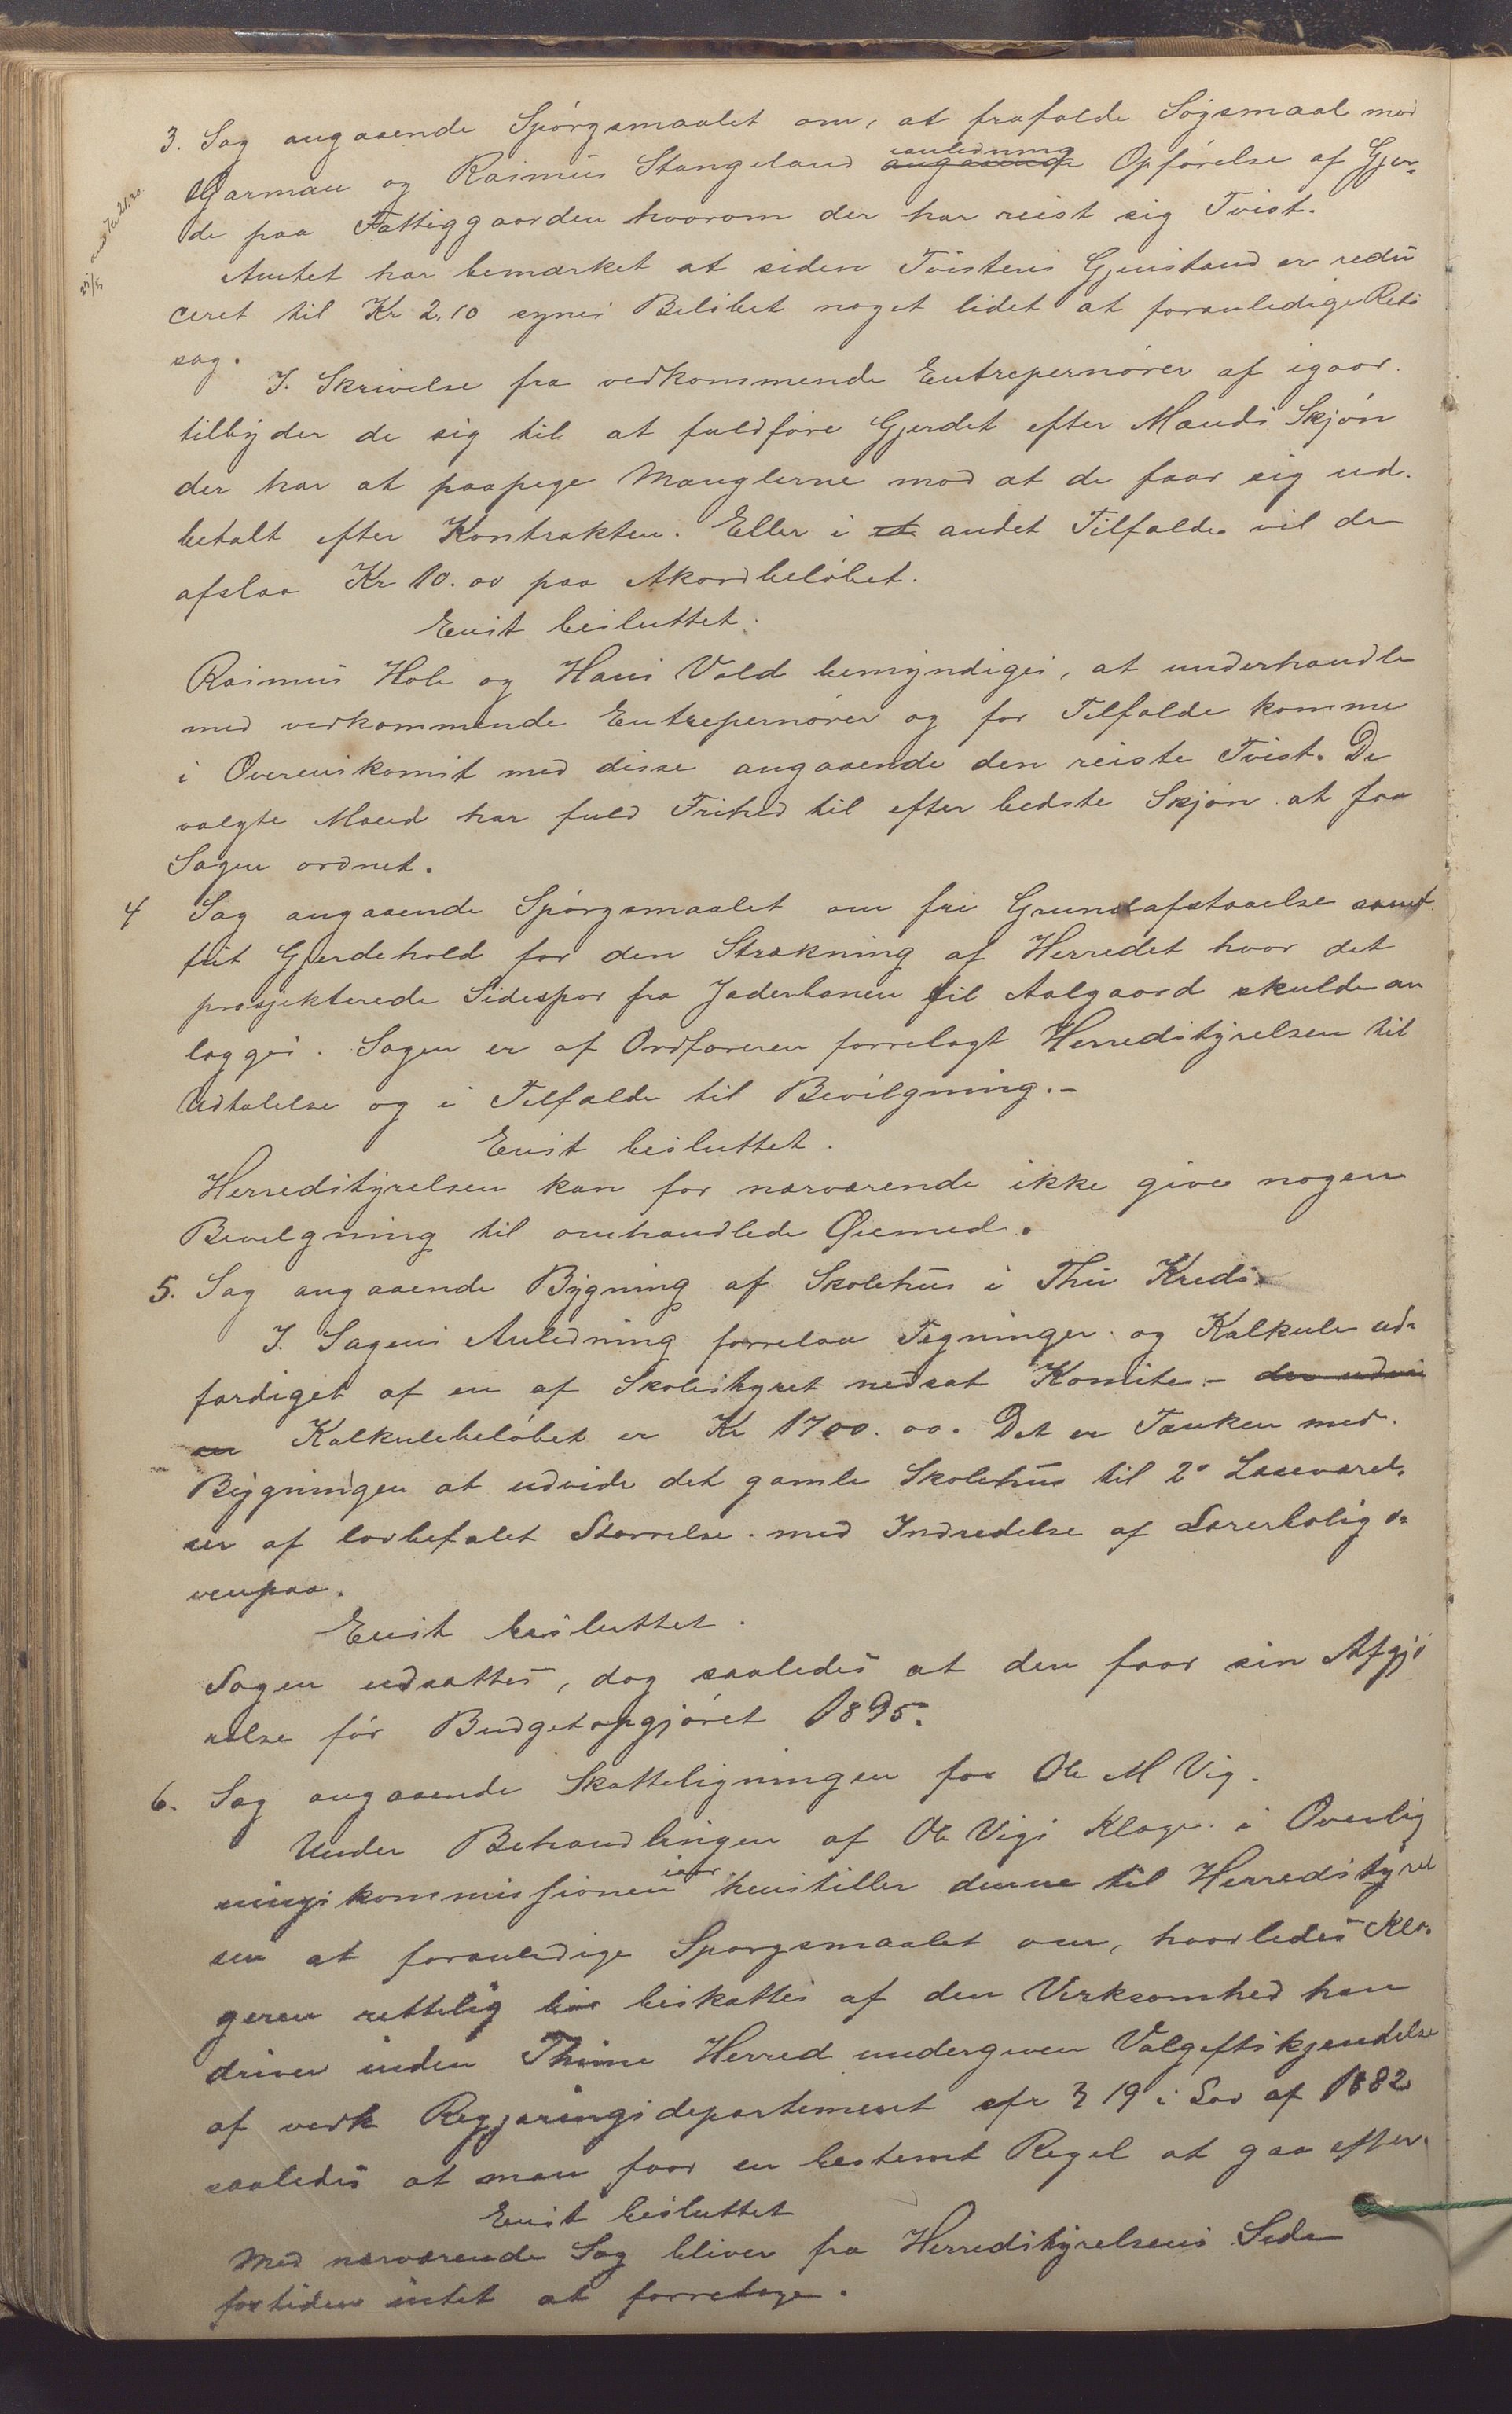 3. Sag angaaende Spørgsmaalet om, at frafalde Søgsmaal mod
Garman og Rasmus Stangeland ianledning angaaende Opførelse af Gjer-
de paa Fattiggaarden hvorom der har reist sig Tvist.
Amtet har bemærket at siden Tvistens Gjenstand er redu
ceret til Kr 2,10 synes Beløbet noget lidet at foranledige Rets
sag.
I. Skrivelse fra vedkommende Entrepernører af igaar.
tilbyder de sig til at fuldføre Gjerdet efter Mænds Skjøn
der har at paapege Manglerne mod at de faar sig ud-
betalt efter Kontrakten. Eller i et andet Tilfælde vil de
afslaa Kr 10.00 paa Akordbeløbet.
Enst besluttet.
Rasmus Hole og Hans Vold bemyndiges, at underhandle
med vedkommende Entrepernører og for Tilfælde komme
i Overenskomst med disse angaaende den reiste Tvist. De
valgte Mænd har fuld Frihed til efter bedste Skjøn at faa
Sagen ordnet.
4 Sag angaaende Spørgsmaalet om fri Grundafstaaelse samt
frit Gjerdehold for den Strækning af Herredet hvor det
prosjekterede Sidespor fra Jæderbanen til Aalgaard skulde an
lægges. Sagen er af Ordføreren forrelagt Herredstyrelsen til
Udtalelse og i Tilfælde til Bevilgning.-
Enst besluttet.
Herredstyrelsen kan for nærværende ikke give nogen
Bevilgning til omhandlede Øiemed.
5. Sag angaaende Bygning af Skolehus i Thu Kreds.
I. Sagens Anledning forrelaa Tegninger og Kalkule ud-
færdiget af en af Skolestyret nedsat Komite -
Kalkulebeløbet er Kr 1700.00. Det er Tanken med
Bygningen at udvide det gamle Skolehus til 2de Læseværel-
ser af lovbefalet Størrelse med Indredelse af Lærerbolig o-
venpaa.
Enst besluttet.
Sagen udsættes, dog saaledes at den faar sin Afgjø
relse før Budgetopgjøret 1895.
6. Sag angaaende Skatteligningen for Ole M Vig.
Under Behandlingen af Ole Vigs Klage i Overlig
ningskommissionen iaar henstiller denne til Herredstyrel
sen at foranledige Spørgsmaalet om, hvorledes Kla-
geren rettelig bør beskattes af den Virksomhed han
driver inden Thime Herred undergiven Valgeftskjendelse
af vedk Regjæringsdepartement cfr § 19 i Lov af 1882
saaledes at man faar en bestemt Regel at gaa efter.
Enst besluttet
Med nærværende Sag bliver fra Herredstyrelsens Side
fortiden intet at forretage.